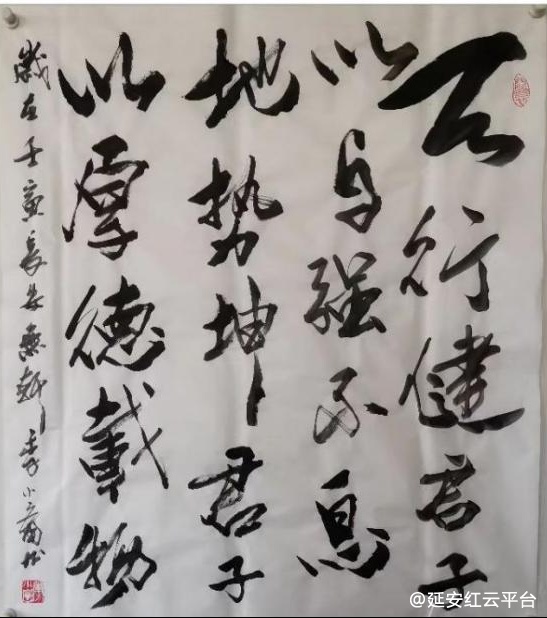 天行健君子
以自强不息
地势坤君子
以厚德載物
歲在壬寅
@延安红云平台